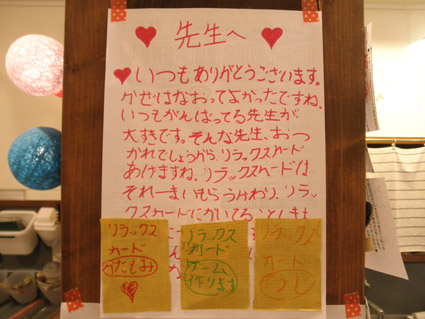 先生へ
いつもありがとうございます。
かぜはなおってよかったですね。
いつもがんばってる先生が
大すきです。そんな先生、おつ
かれでしょうから、リラックスカード
あげますね。リラックスカードは
それ一まいもらうかわり、リラッ
クスカードにかいてることします
リラックス
カード
かたもみ
リラックス
カード
ゲーム
作ります
リラックス
カード